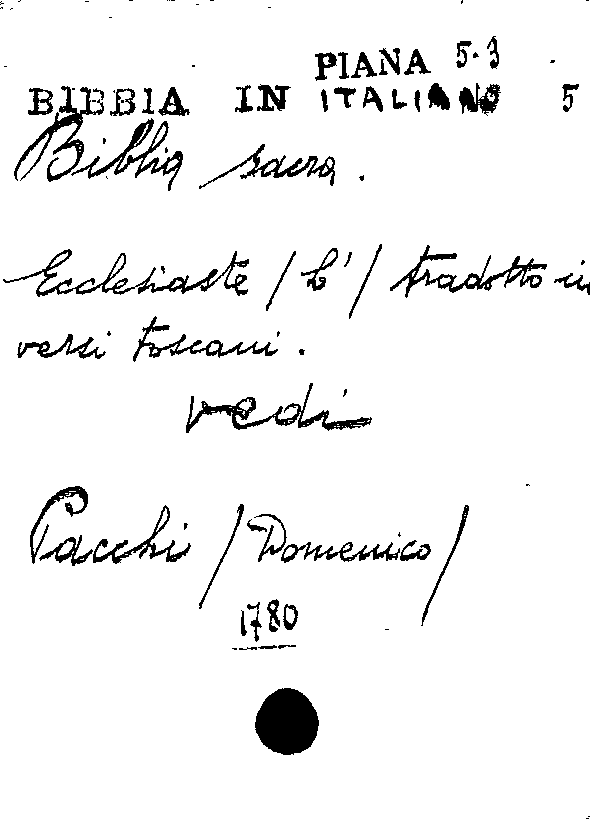 PIANA 5.3
BIBBIA IN ITALIANO 5
Biblia sacra.
Ecclesiaste / L' / tradotto in
versi toscani.
vedi
Pacchi / Domenico /
1780